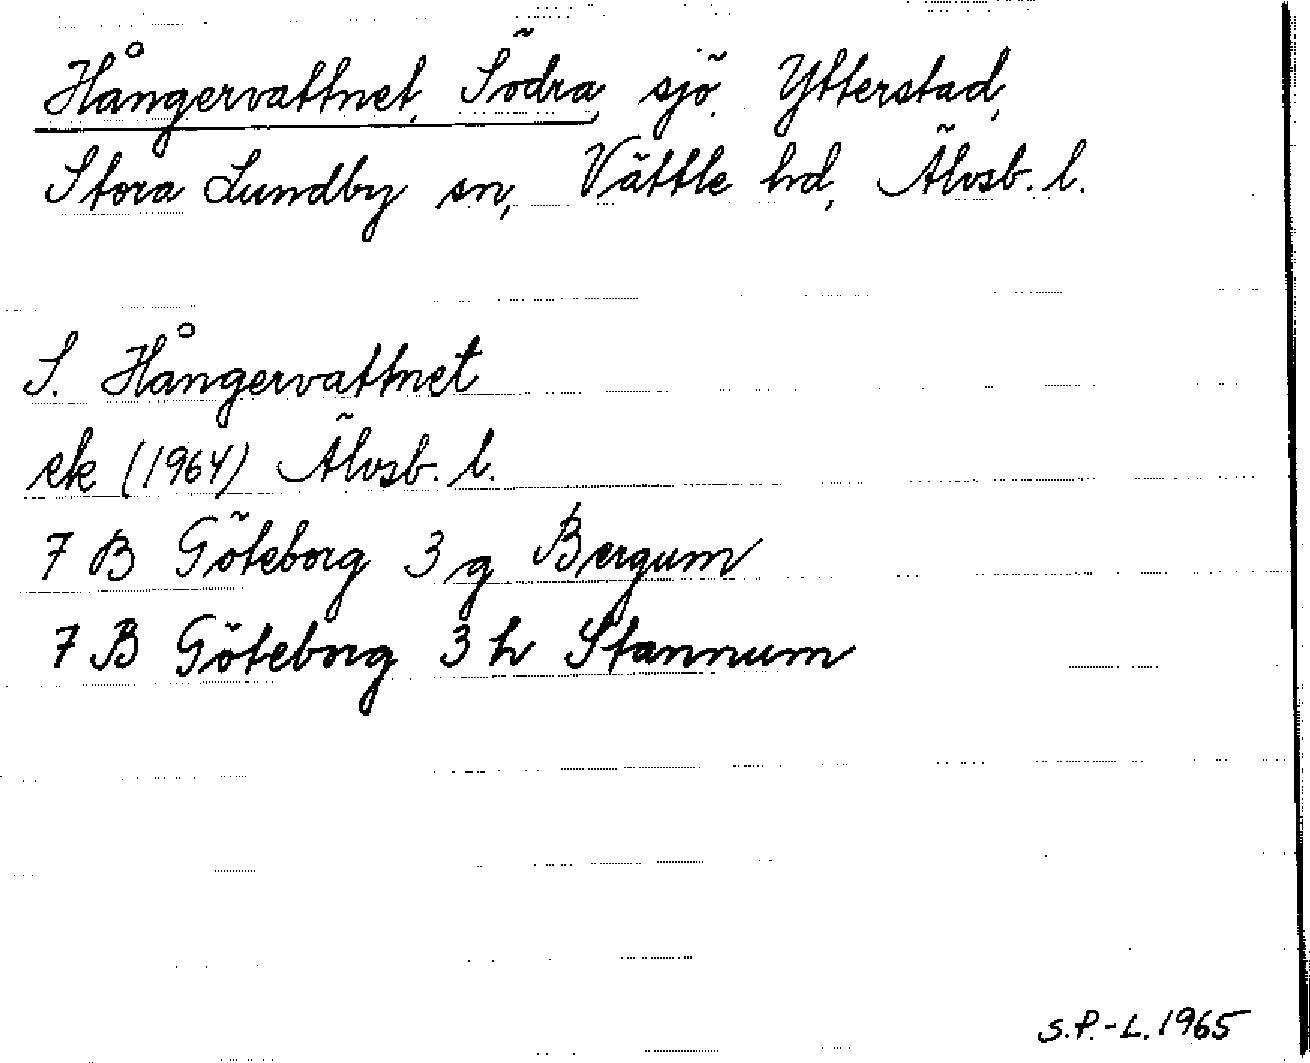 Hångervattnet, Södra, sjö. Ytterstad,
Stora Lundby sn, Vättle hd, Älvsb. l.
S. Hångervattnet
ek (1964) Älvsb. l.
7 B Göteborg 3 g Bergum
7 B Göteborg 3 h Stannum
S.P.-L. 1965